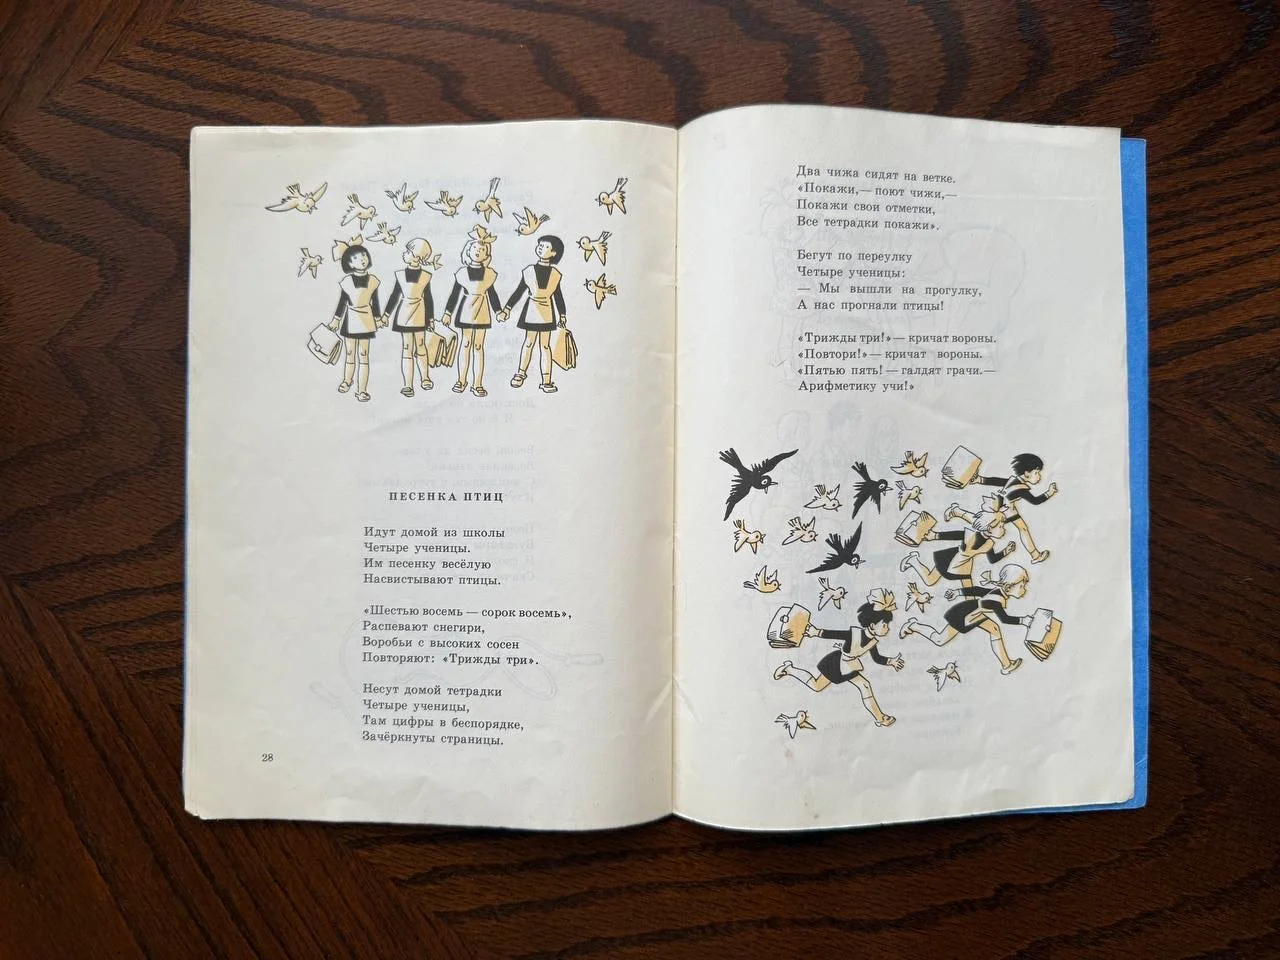 ПЕСЕНКА ПТИЦ
Идут домой из школы
Четыре ученицы.
Им песенку весёлую
Насвистывают птицы.
«Шестью восемь — сорок восемь»,
Распевают снегири,
Воробьи с высоких сосен
Повторяют: «Трижды три».
Несут домой тетрадки
Четыре ученицы,
Там цифры в беспорядке,
Зачёркнуты страницы.
28
Два чижа сидят на ветке.
«Покажи,— поют чижи,—
Покажи свои отметки,
Все тетрадки покажи».
Бегут по переулку
Четыре ученицы:
— Мы вышли на прогулку,
А нас прогнали птицы!
«Трижды три!» — кричат вороны.
«Повтори!» — кричат вороны.
«Пятью пять! — галдят грачи.—
Арифметику учи!»